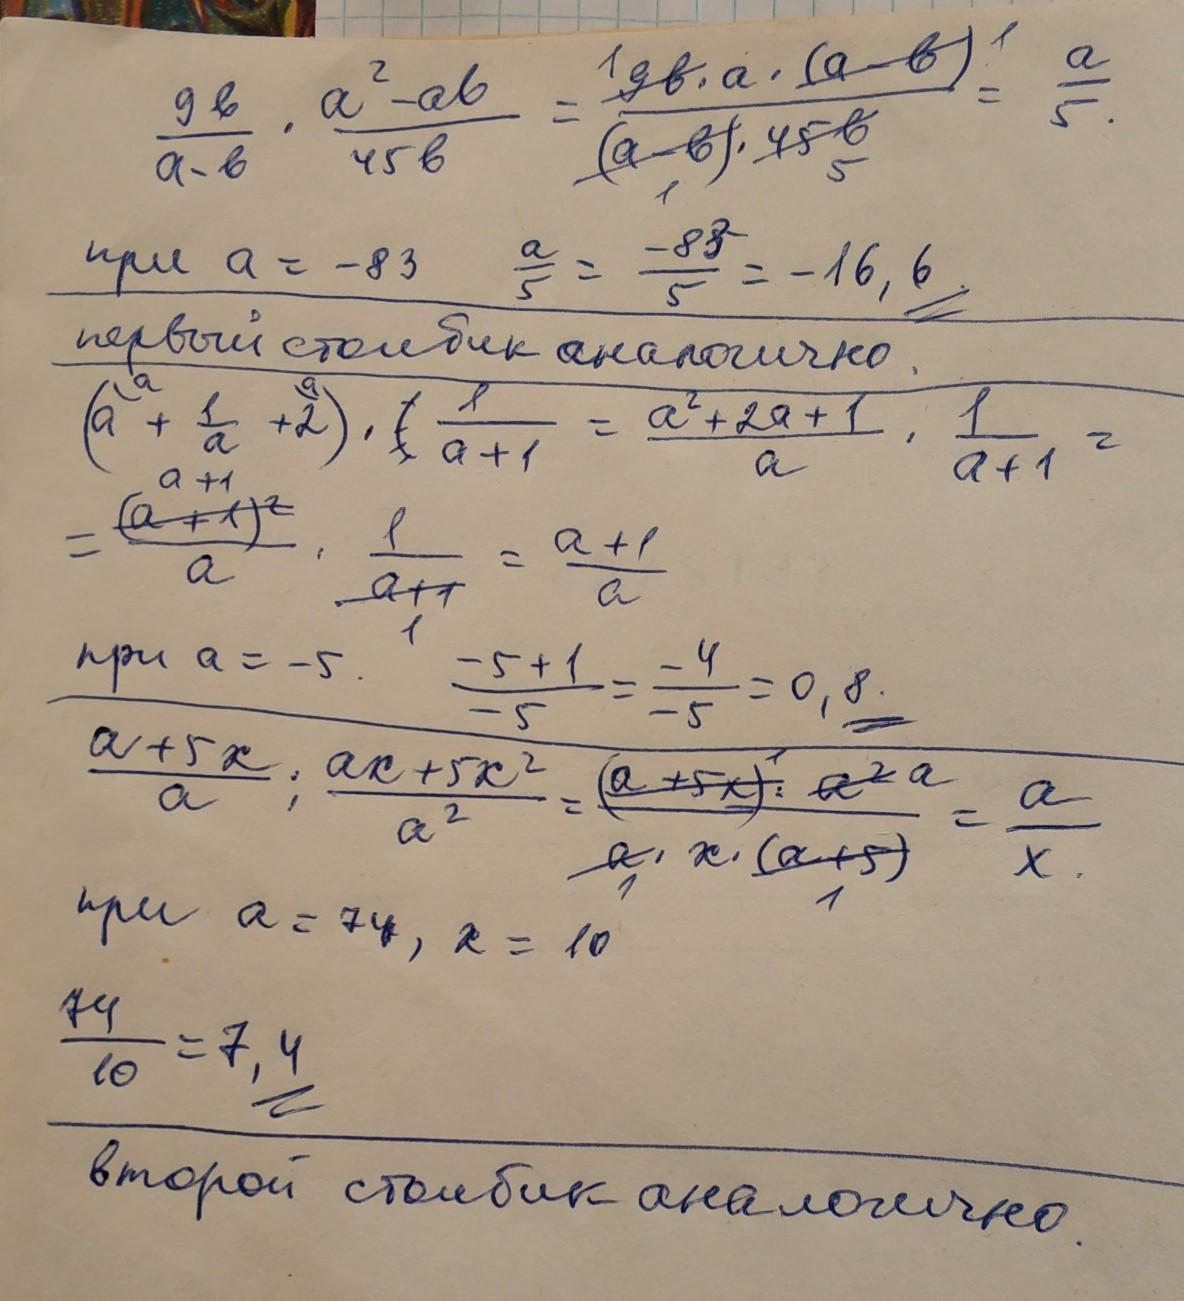 9b/(a-b) · (a²-ab)/45b = (9b·a·(a-b))/((a-b)·45b) = a/5. 1 1 1 5
при a = -83 a/5 = -83/5 = -16,6
первый столбик аналогично.
(a + 1/a + 2) · 1/(a+1) = (a²+2a+1)/a · 1/(a+1) = a a
= (a+1)²/a · 1/(a+1) = (a+1)/a a+1 1
при a = -5. (-5+1)/-5 = -4/-5 = 0,8.
(a+5x)/a : (ax+5x²)/a² = ((a+5x)·a²)/(a·x·(a+5)) = a/x. 1 a 1 1
при a = 74, x = 10
74/10 = 7,4
второй столбик аналогично.